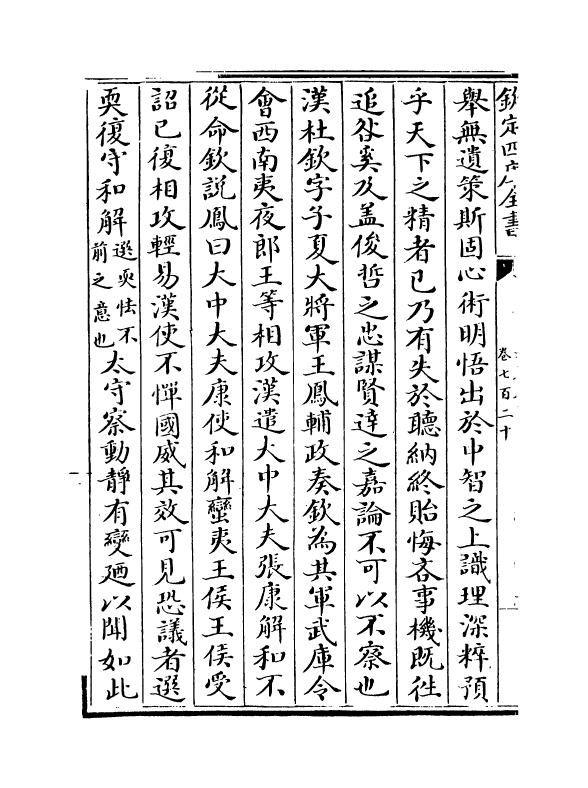 欽定四庫全書
卷七百二十
舉無遺策斯固心術明悟出於中智之上識理深粹預
乎天下之精者已乃有失於聽納終貽悔吝事機既徃
追咎奚及盖俊哲之忠謀賢達之嘉論不可以不察也
漢杜欽字子夏大將軍王鳳輔政奏欽為其軍武庫令
會西南夷夜郎王等相攻漢遣大中大夫張康解和不
從命欽説鳳曰大中大夫康使和解蠻夷王侯王侯受
詔已復相攻輕易漢使不憚國威其效可見恐議者選
耎復守和解選耎怯不前之意也太守察動靜有變廼以聞如此